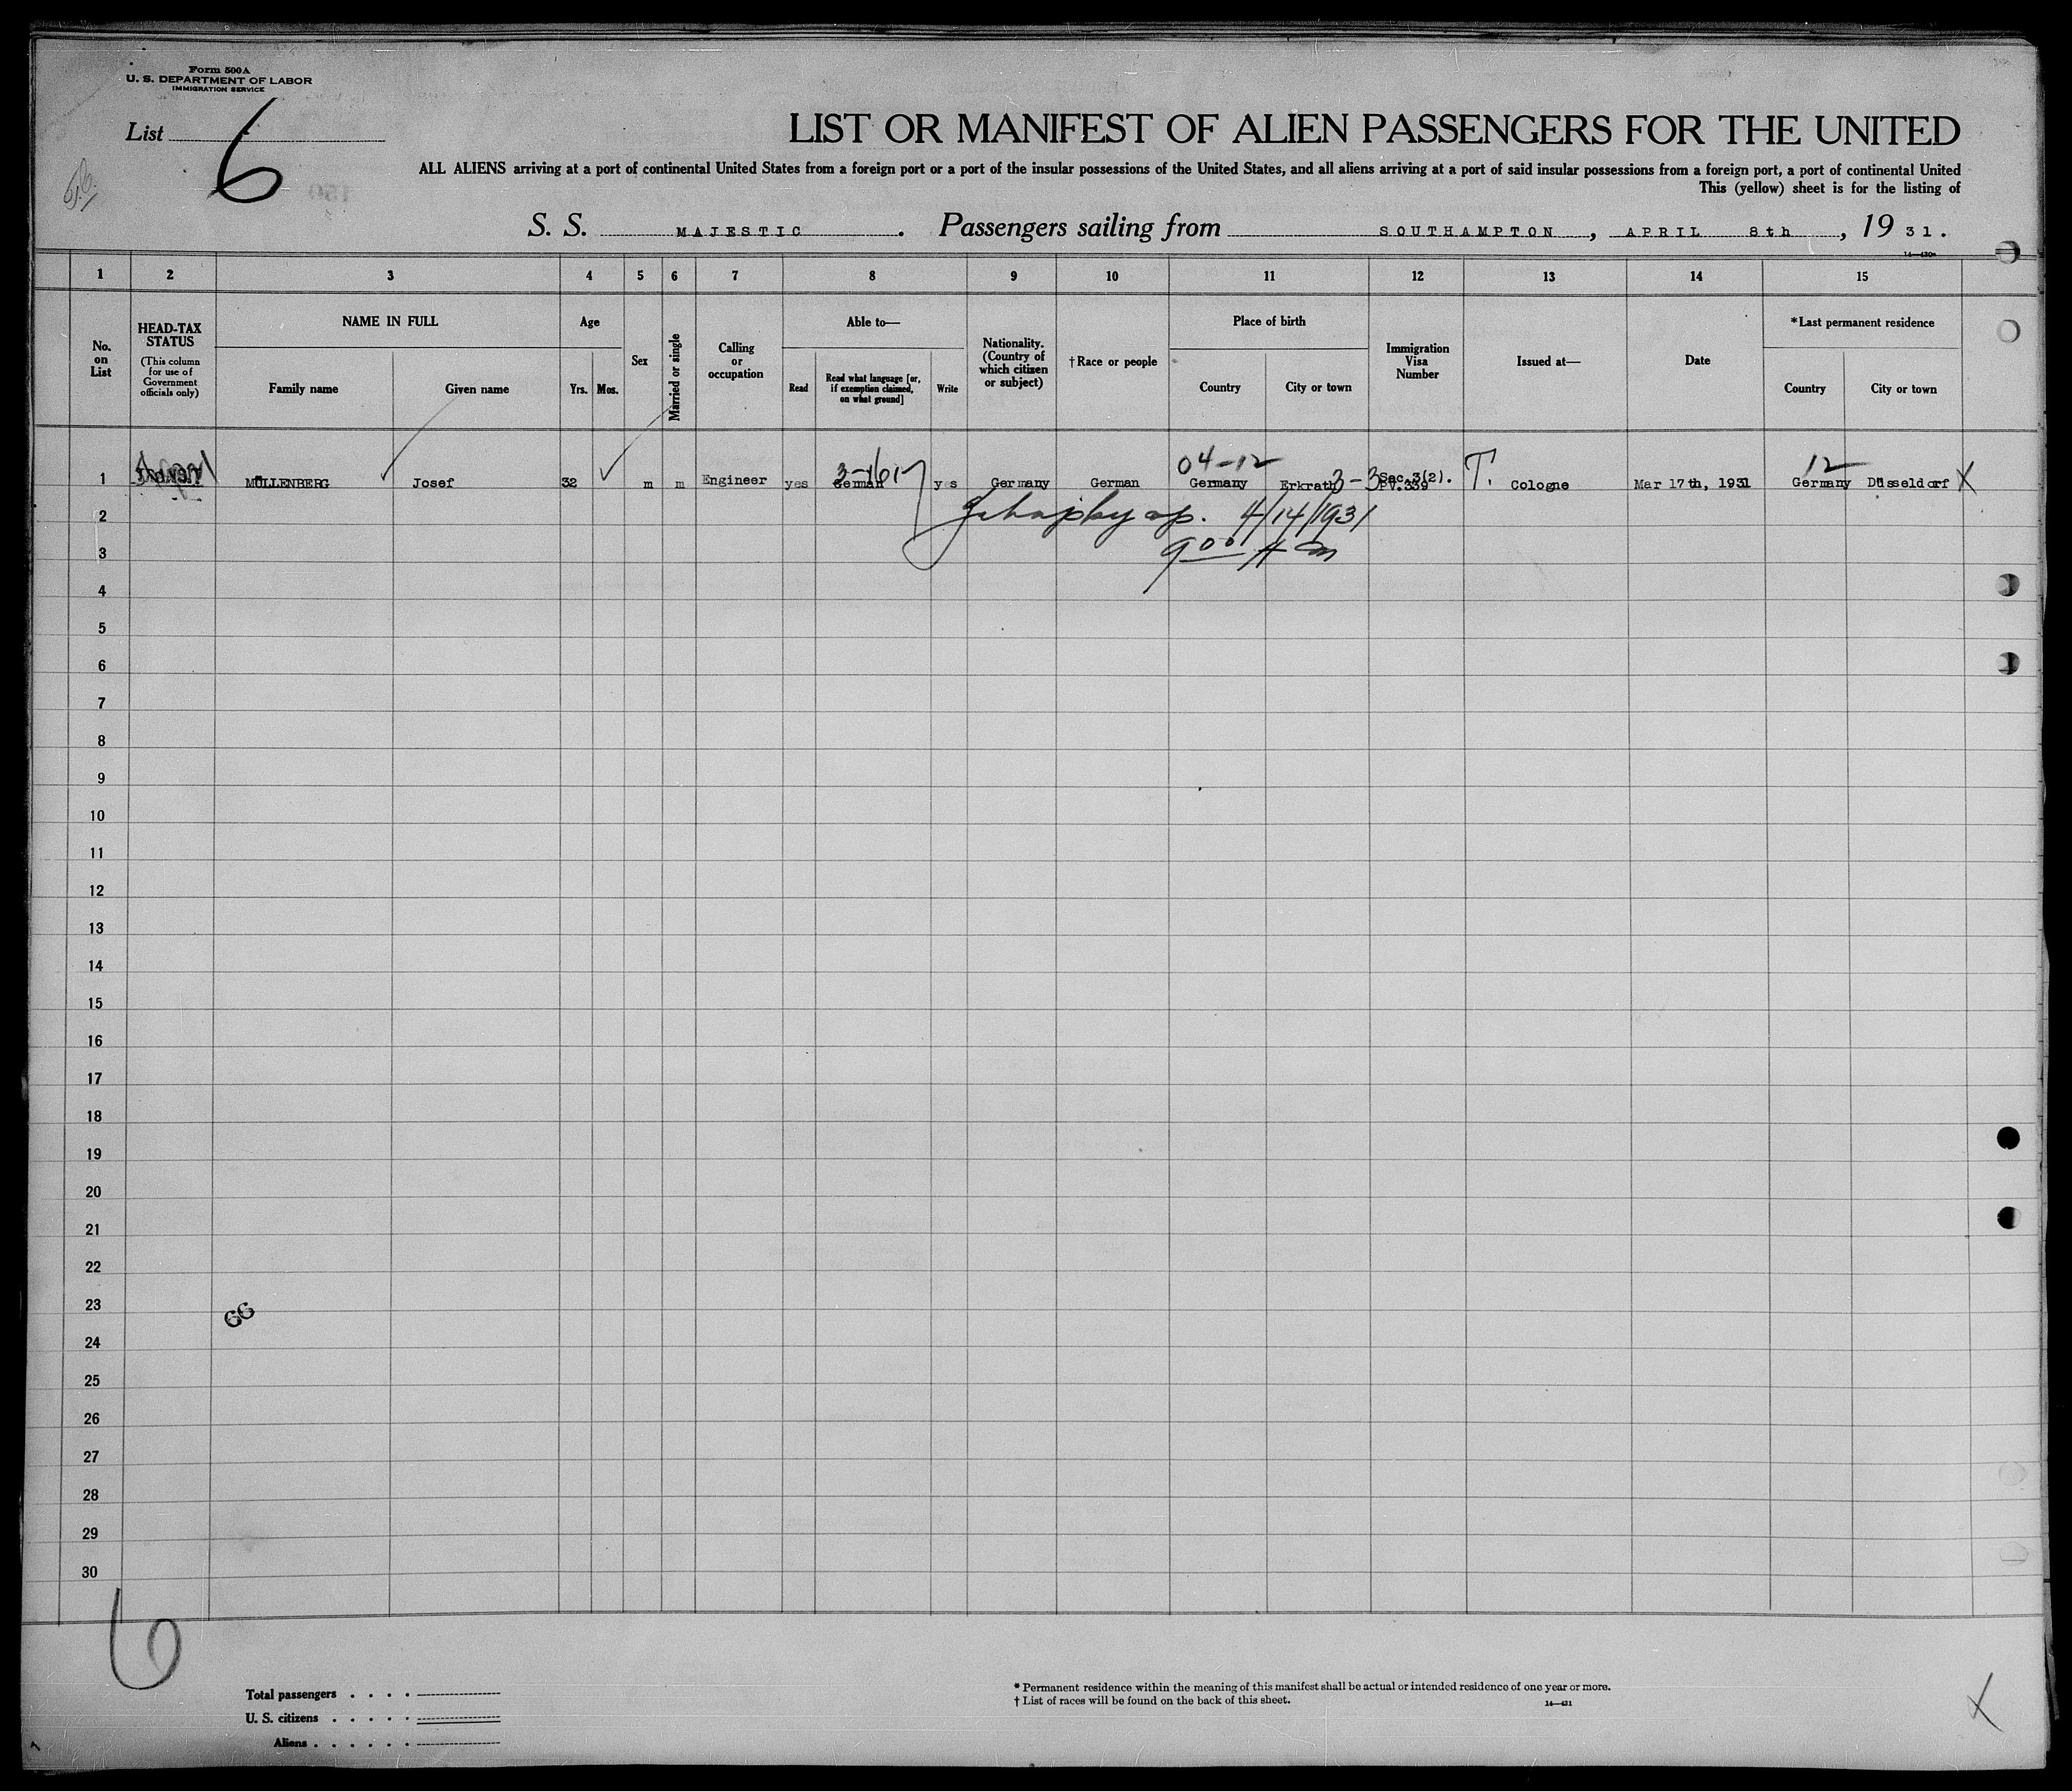 Form 500 A
U. S. DEPARTMENT OF LABOR
IMMIGRATION SERVICE
List 6
LIST OR MANIFEST OF ALIEN PASSENGERS FOR THE UNITED
ALL ALIENS arriving at a port of continental United States from a foreign port or a port of the insular possessions of the United States, and all aliens arriving at a port of said insular possessions from a foreign port, a port of continental United
This (yellow) sheet is for the listing of
S. S. MAJESTIC. Passengers sailing from SOUTHAMPTON, APRIL 8th, 1931.
1 2 3 4 5 6 7 8 9 10 11 12 13 14 15
No. on List
HEAD-TAX STATUS
(This column for use of Government officials only)
NAME IN FULL
Family name Given name
Age
Yrs. Mos.
Sex
Married or single
Calling or occupation
Able to—
Read
Read what language [or, if exemption claimed, on what ground]
Write
Nationality. (Country of which citizen or subject)
†Race or people
Place of birth
Country City or town
Immigration Visa Number
Issued at—
Date
*Last permanent residence
Country City or town
04-12 12
1 MÜLLENBERG Josef 32 m m Engineer yes German yes Germany German Germany Erkrath 3-3 Sec.3(2). PV.339 T. Cologne Mar 17th, 1931 Germany Düsseldorf X
2 4/14/1931
3 9 00 AM
4
5
6
7
8
9
10
11
12
13
14
15
16
17
18
19
20
21
22
23
GG
24
25
26
27
28
29
30
6
Total passengers . . . .
U. S. citizens . . . . .
Aliens . . . . . .
* Permanent residence within the meaning of this manifest shall be actual or intended residence of one year or more.
† List of races will be found on the back of this sheet. 14—431
X